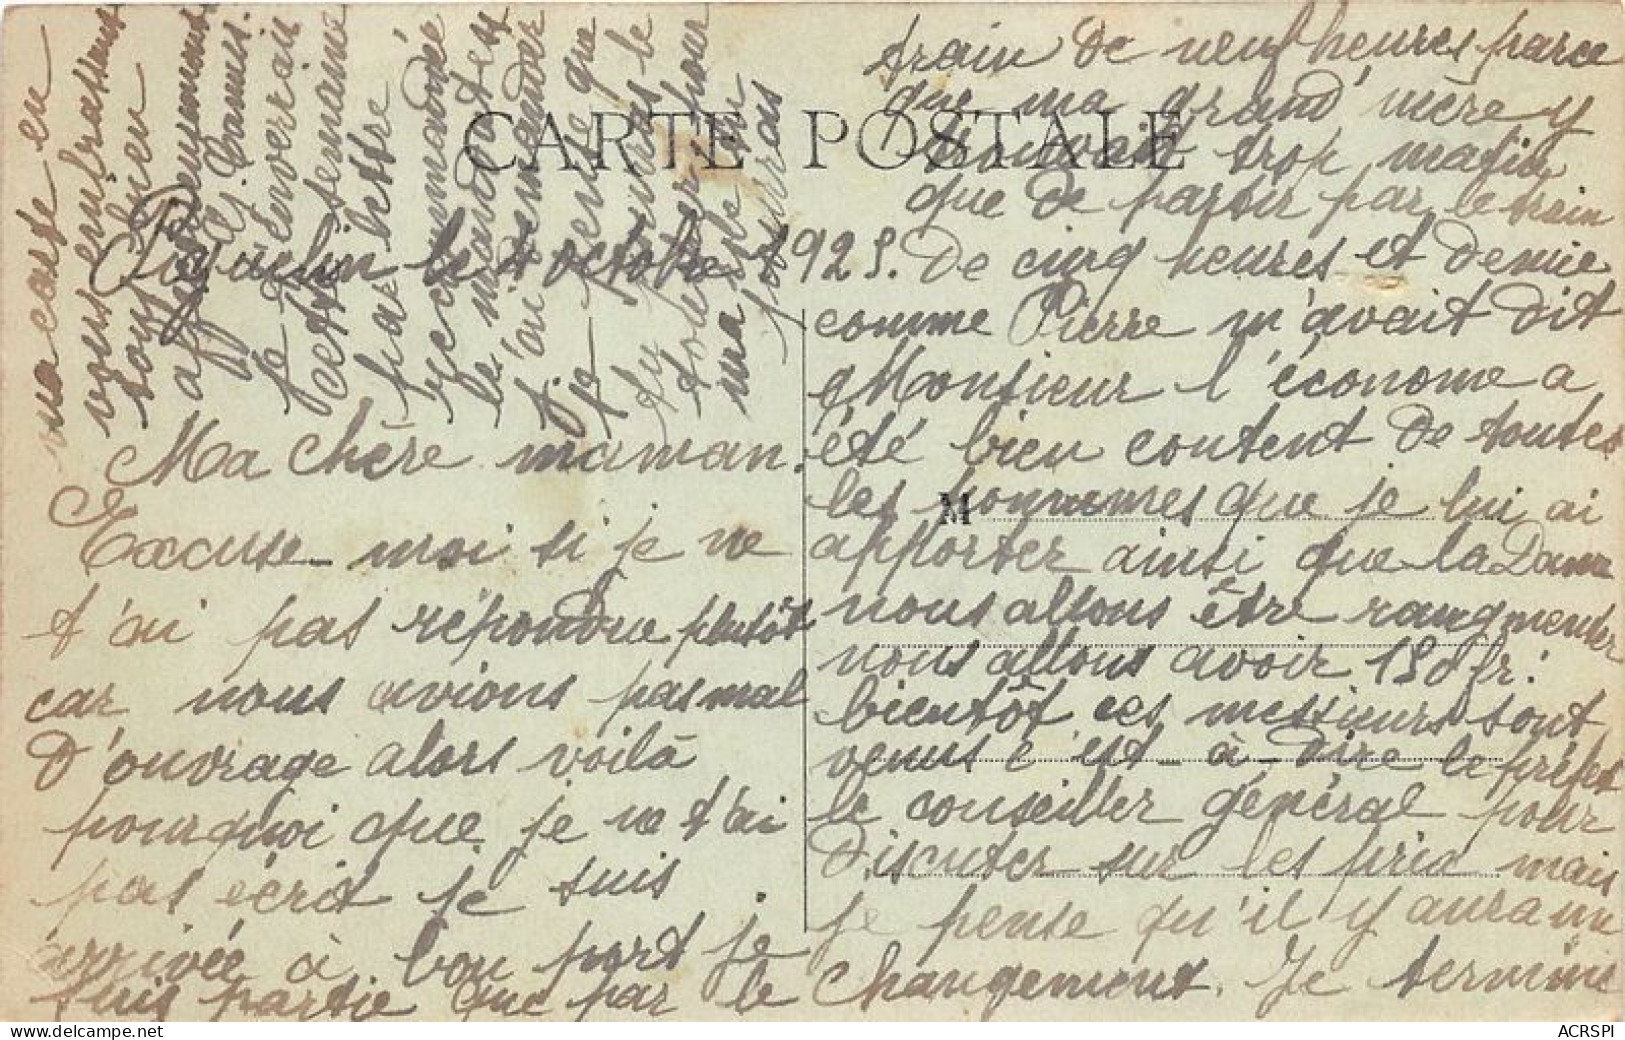 CARTE POSTALE
le 4 octobre 1925.
Ma chère maman.
Excuse-moi si je ne
t'ai pas répondue plutôt
car nous avions pas mal
d'ouvrage alors voilà
pourquoi que je ne t'ai
pas écrit je suis
arrivée à bon port je
suis partie que par le
train de neuf heures parce
que ma grand'mère y
trouvait trop matin
que de partir par le train
de cinq heures et demie
comme Pierre m'avait dit
Monsieur l'économe a
été bien content de toutes
les pommes que je lui ai
M
apporter ainsi que la Dame
nous allons être raugmenter
nous allons avoir 150 fr.
bientôt ces messieurs sont
venus c'est-à-dire le préfet
le conseiller général pour
discuter sur les prix mais
je pense qu'il y aura un
changement. Je termine
ma carte en
vous embrassant
tous bien
affectueusement
Camis.
Je t'enverrai
cette semaine
par lettre
recommandée
le mandat et
j'ai demandé
je pense que
tu pourras le
toucher pour
ma
pourras
delcampe.net
ACRSPI